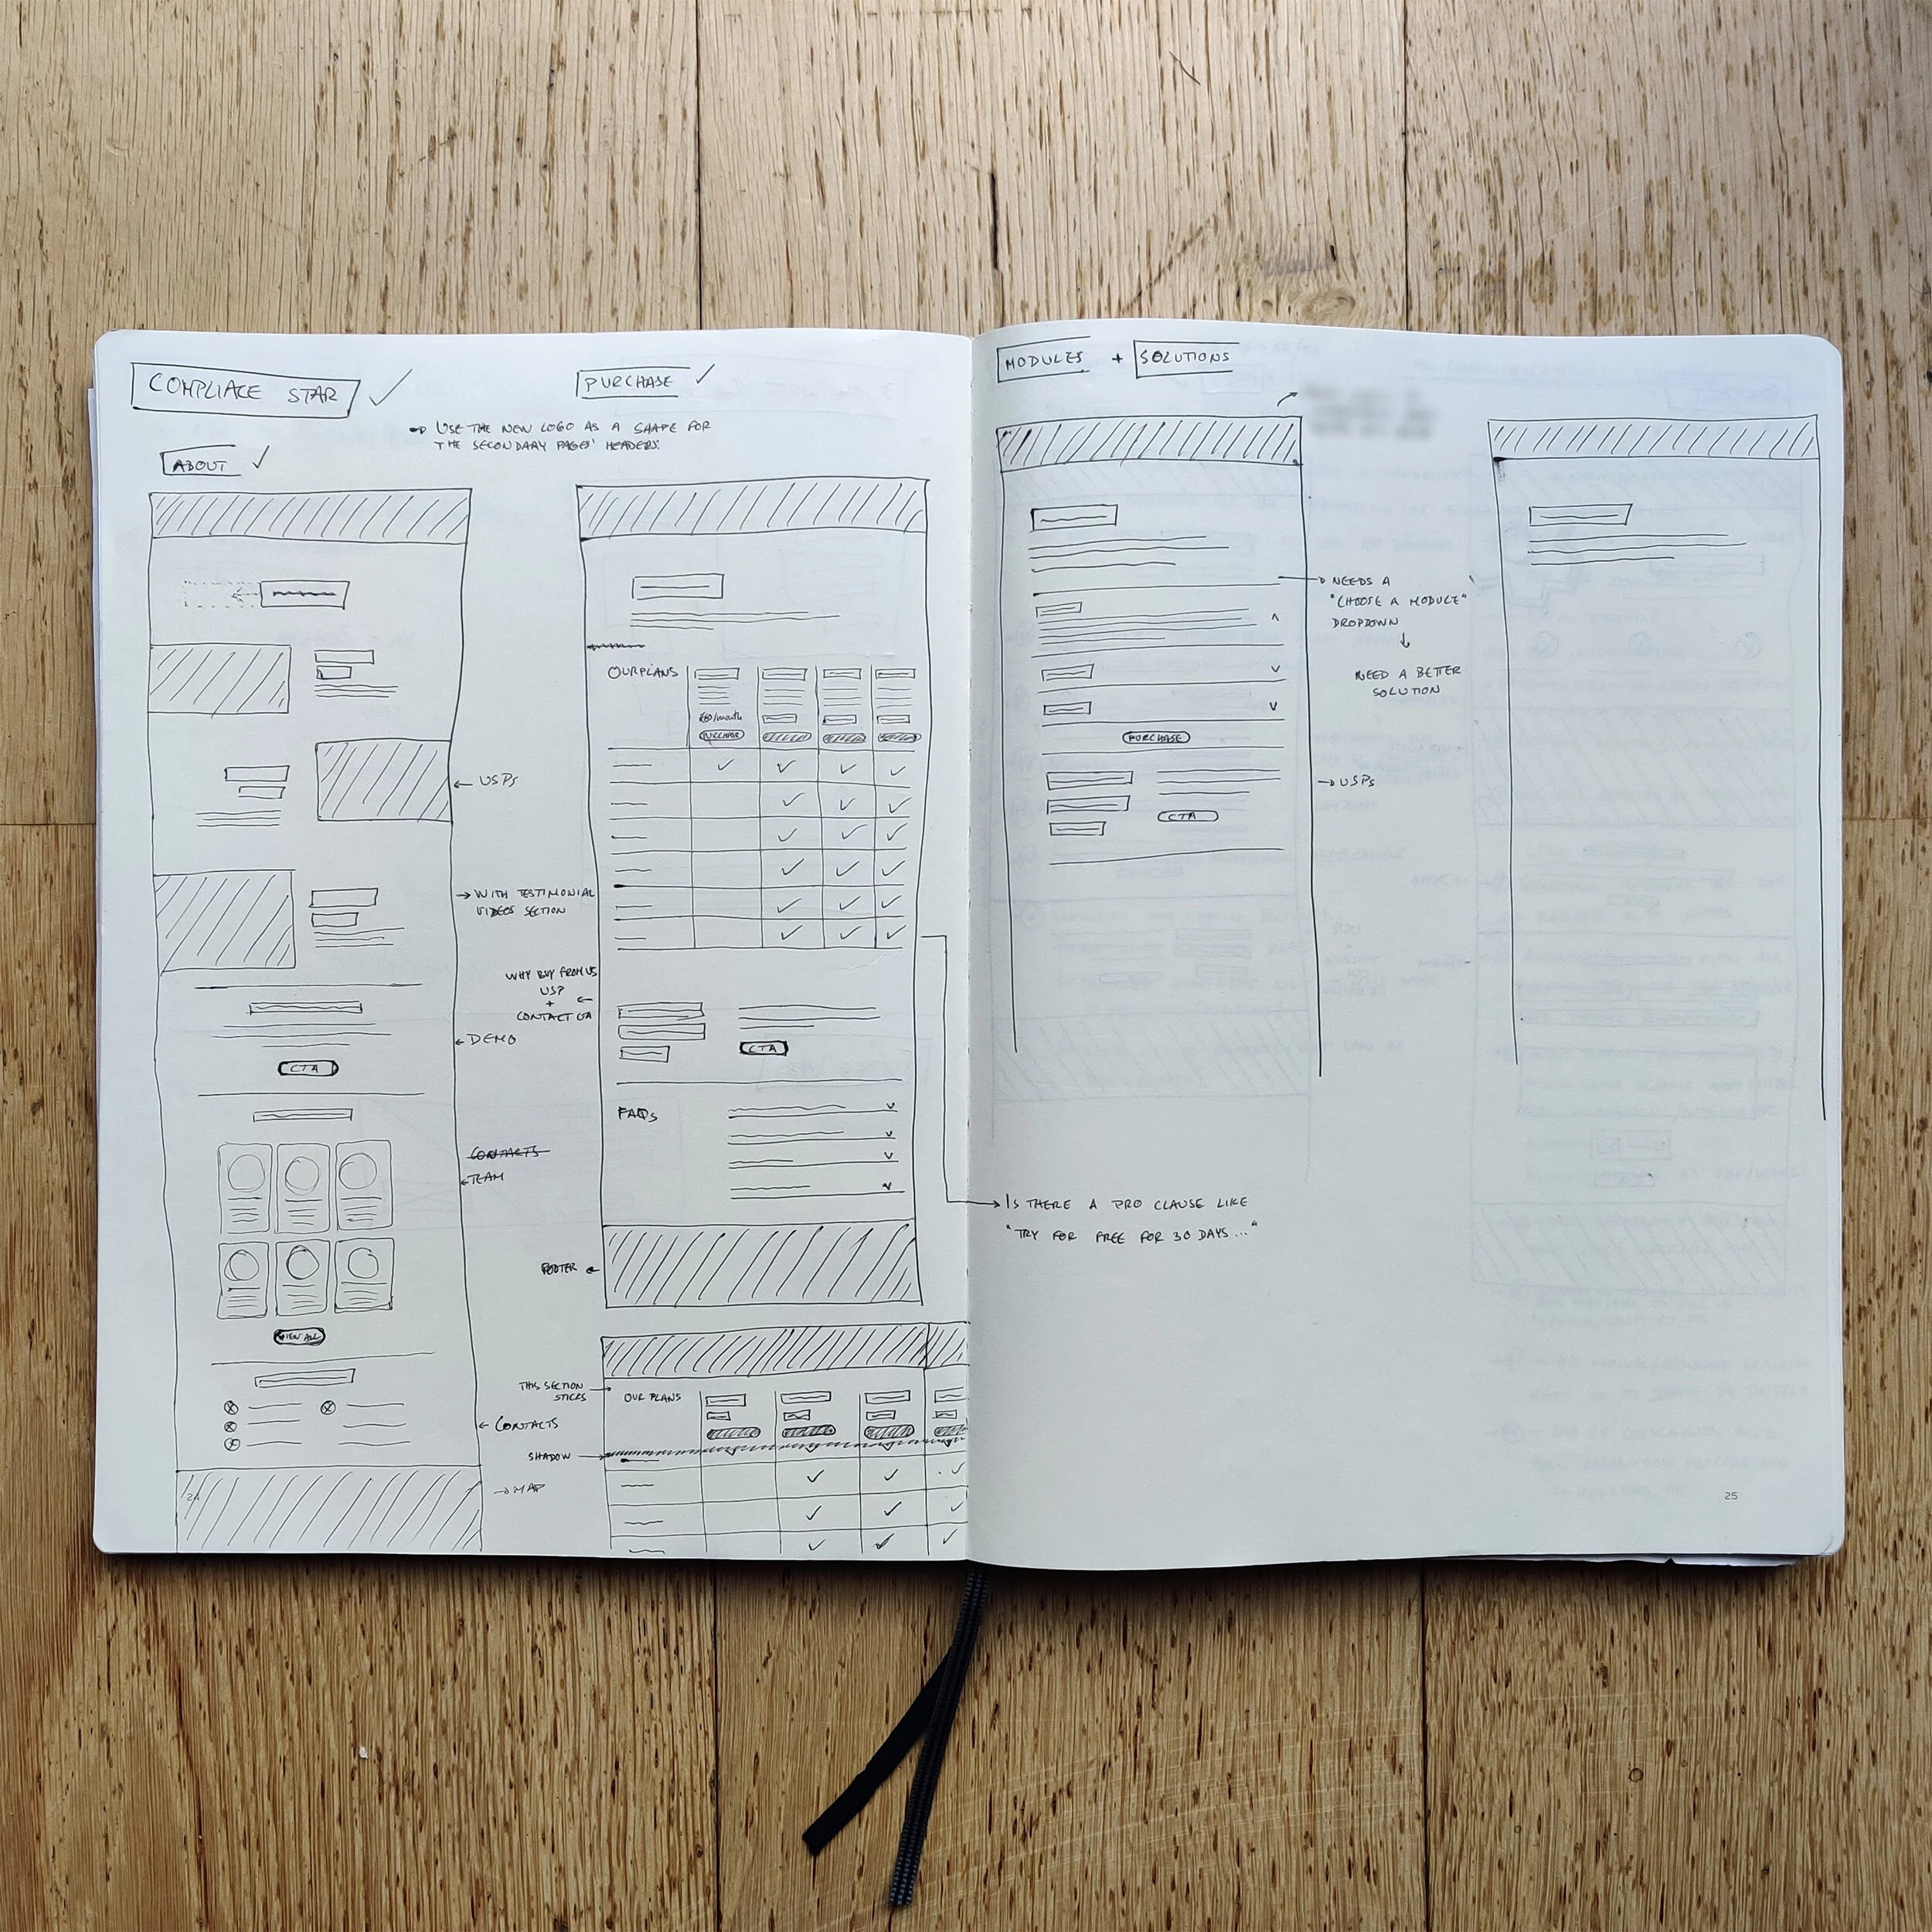 COMPLIACE STAR
PURCHASE
USE THE NEW LOGO AS A SHAPE FOR
THE SECONDARY PAGES' HEADERS.
ABOUT
USPs
WITH TESTIMONIAL
VIDEOS SECTION
DEMO
CTA
CONTACTS
TEAM
VIEW ALL
CONTACTS
MAP
24
OUR PLANS
/month
PURCHASE
WHY BUY FROM US
USP
+
CONTACT
CTA
FAQs
FOOTER
THIS SECTION
STICKS
OUR PLANS
SHADOW
MODULES + SOLUTIONS
NEEDS A
"CHOOSE A MODULE"
DROPDOWN
NEED A BETTER
SOLUTION
PURCHASE
USPs
CTA
IS THERE A PRO CLAUSE LIKE
"TRY FOR FREE FOR 30 DAYS..."
25